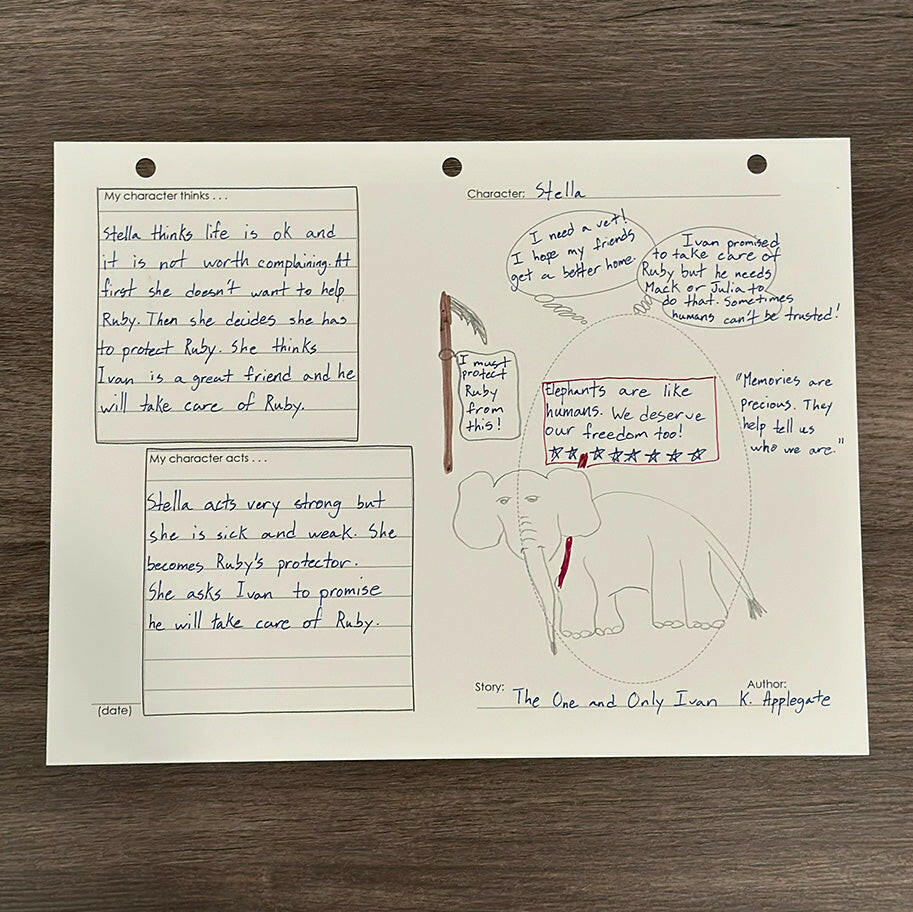 My character thinks . . .
Stella thinks life is ok and
it is not worth complaining. At
first she doesn't want to help
Ruby. Then she decides she has
to protect Ruby. She thinks
Ivan is a great friend and he
will take care of Ruby.
My character acts . . .
Stella acts very strong but
she is sick and weak. She
becomes Ruby's protector.
She asks Ivan to promise
he will take care of Ruby.
(date)
Character: Stella
I need a vet!
I hope my friends
get a better home.
Ivan promised
to take care of
Ruby but he needs
Mack or Julia to
do that. Sometimes
humans can't be trusted!
I must
protect
Ruby
from
this!
Elephants are like
humans. We deserve
our freedom too!
"Memories are
precious. They
help tell us
who we are."
Story: The One and Only Ivan
Author: K. Applegate